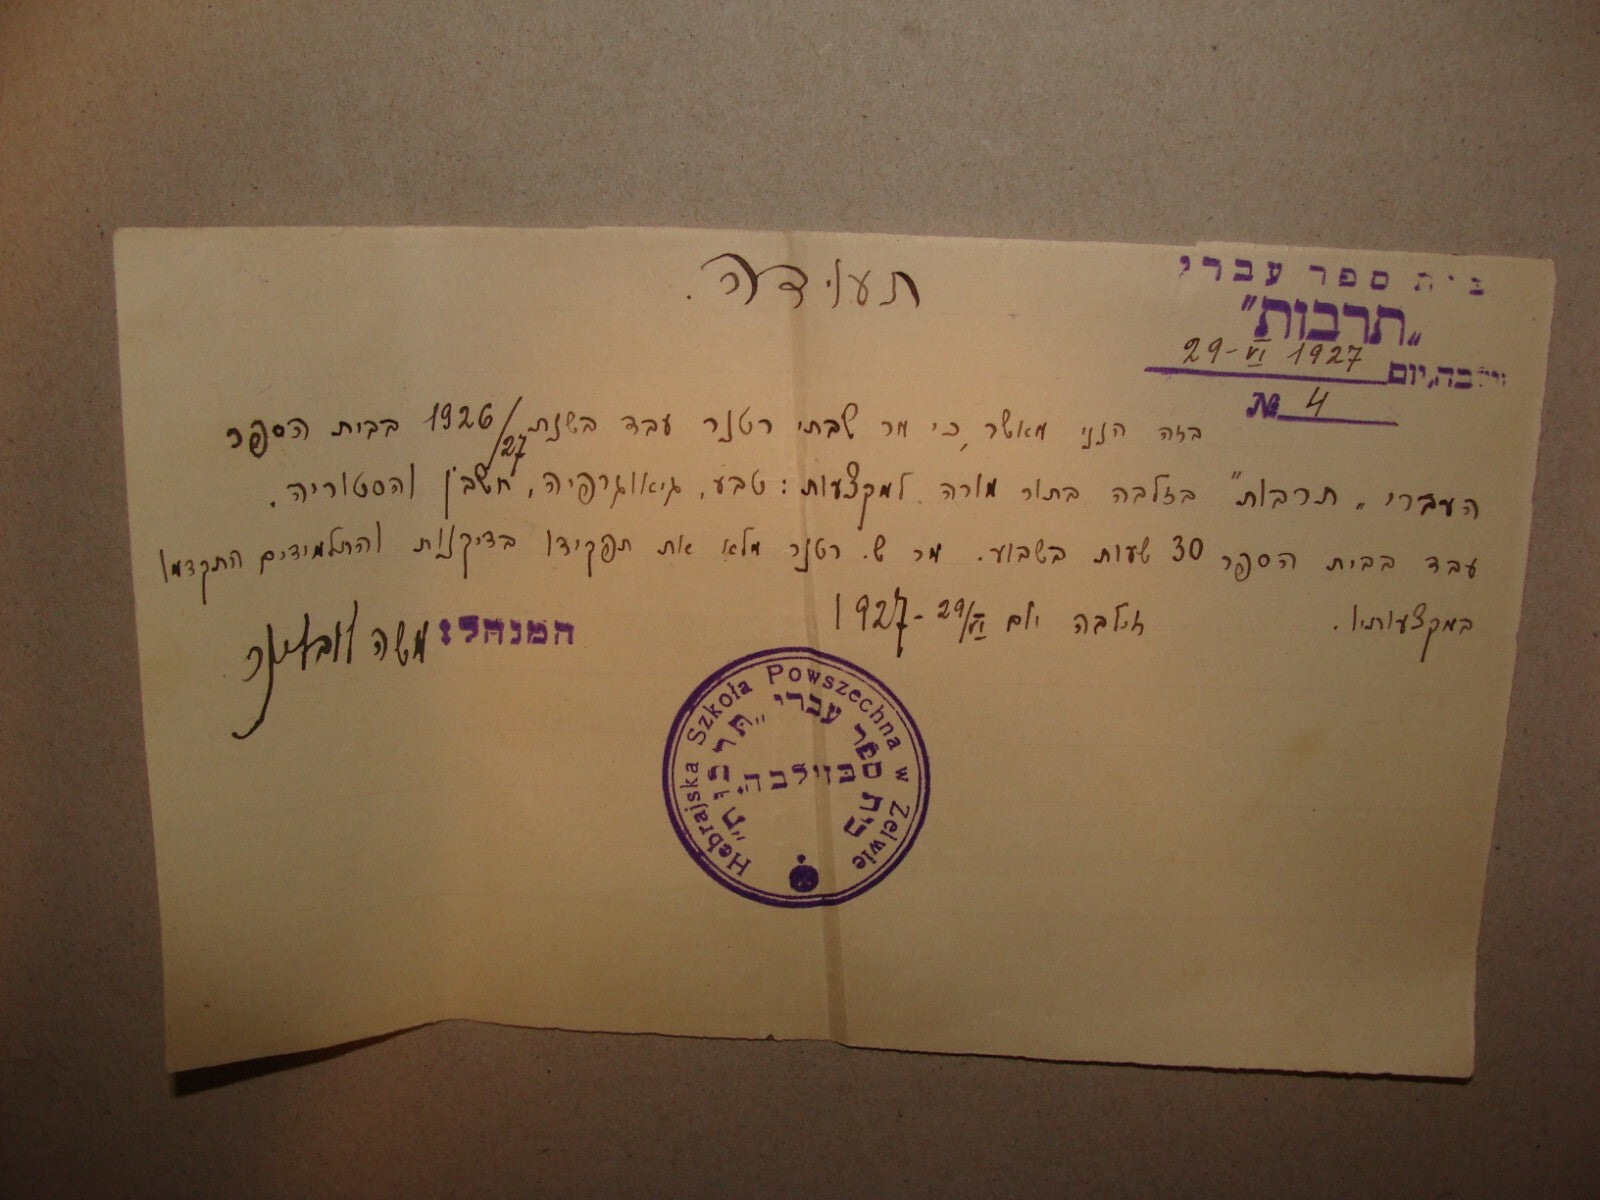 בית ספר עברי
„תרבות"
זילבה, יום 29-VI 1927
№ 4
תעודה.
בזה הנני מאשר, כי מר שבתי רטנר עבד בשנת 1926/27 בבית הספר
העברי „תרבות" בזלבה בתור מורה למקצעות: טבע, גיאוגרפיה, חשבון והסטוריה.
עבד בבית הספר 30 שעות בשבוע. מר ש. רטנר מלא את תפקידו בדיקנות והתלמידים התקדמו
במקצעותיו.
זלבה יום 29/VI - 1927
המנהל: משה
Hebrajska Szkoła Powszechna w Zelwie
בית ספר עברי „תרבות"
בזילבה.